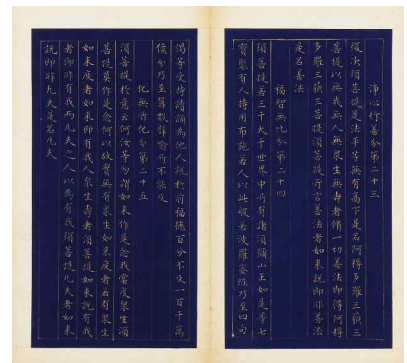 淨心行善分第二十三
復次須菩提是法平等無有高下是名阿耨多羅三藐三
菩提以無我無人無衆生無壽者脩一切善法即得阿耨
多羅三藐三菩提須菩提所言善法者如來說即非善法
是名善法
福智無比分第二十四
須菩提若三千大千世界中所有諸須彌山王如是等七
寶聚有人持用布施若人以此般若波羅蜜經乃至四句
偈等受持讀誦為他人說於前福德百分不及一百千萬
億分乃至算數譬喻所不能及
化無所化分第二十五
須菩提於意云何汝等勿謂如來作是念我當度衆生須
菩提莫作是念何以故實無有衆生如來度者若有衆生
如來度者如來即有我人衆生壽者須菩提如來說有我
者即非有我而凡夫之人以為有我須菩提凡夫者如來
說即非凡夫是名凡夫